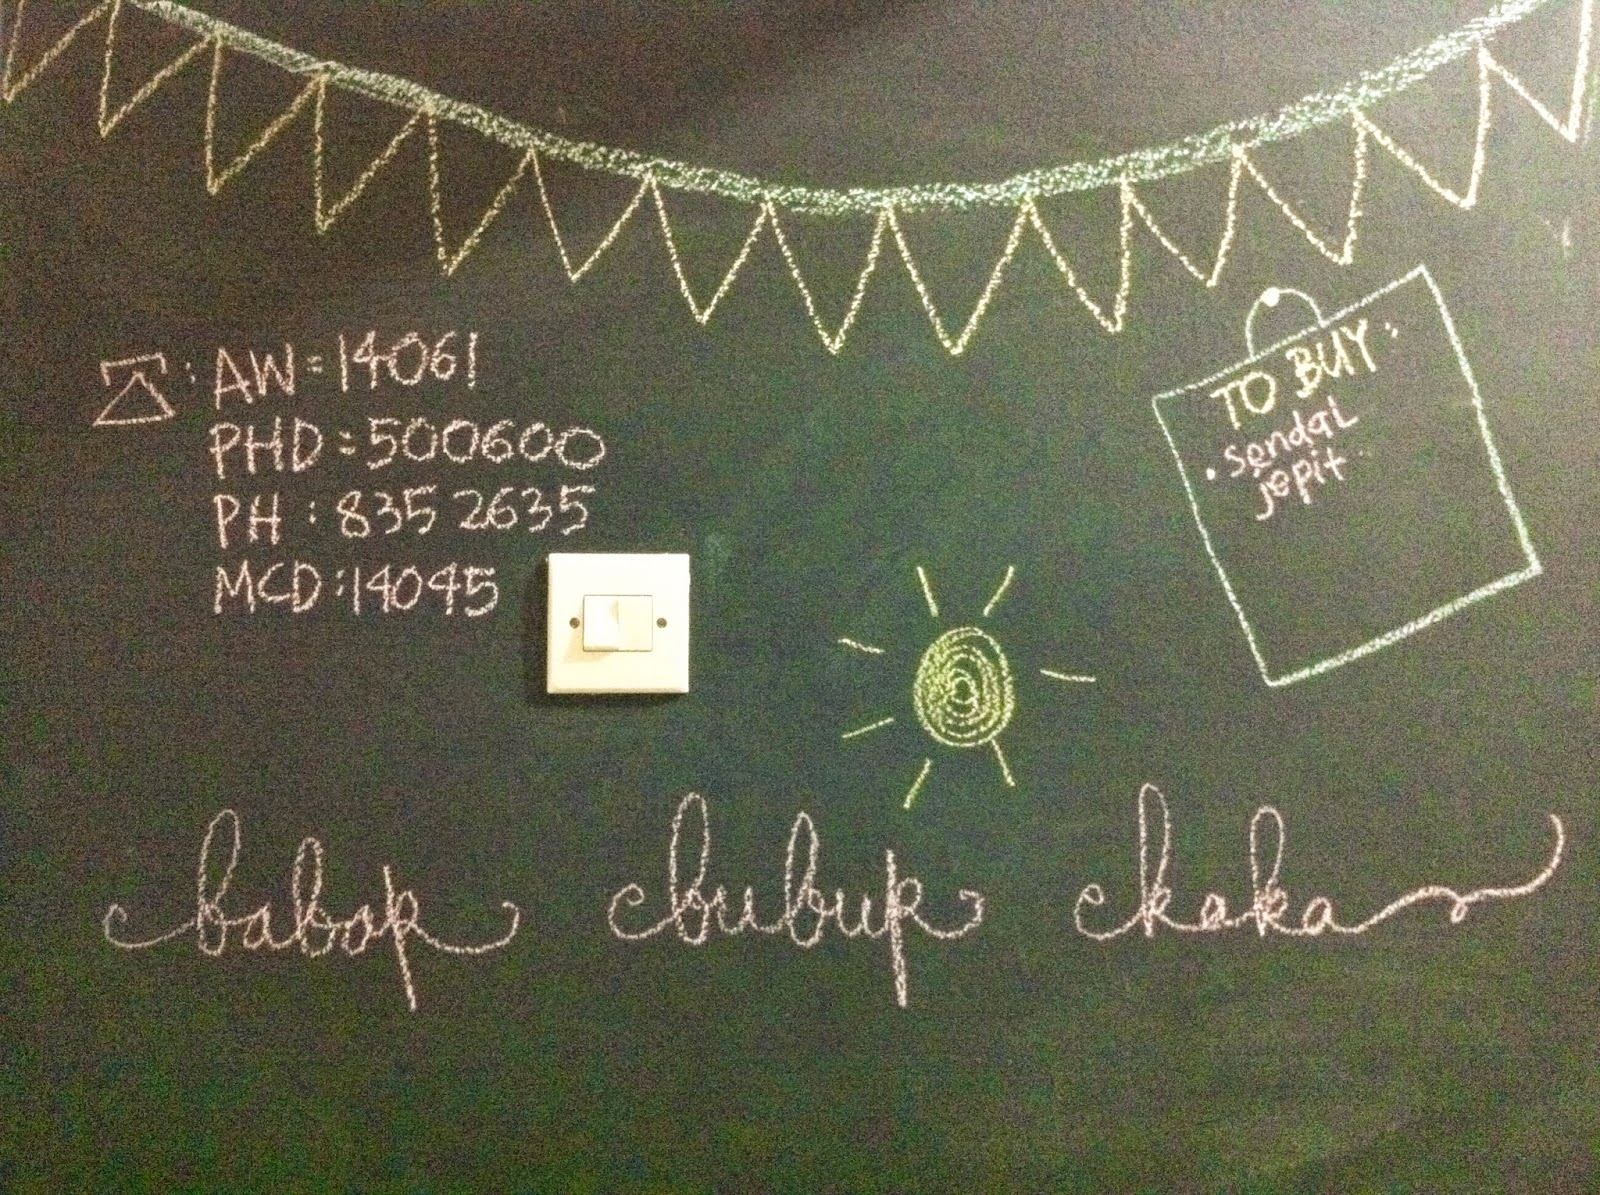 AW = 14061
PHD = 500600
PH : 835 2635
MCD : 14045
TO BUY :
. sendal
jepit
babap bubup kaka